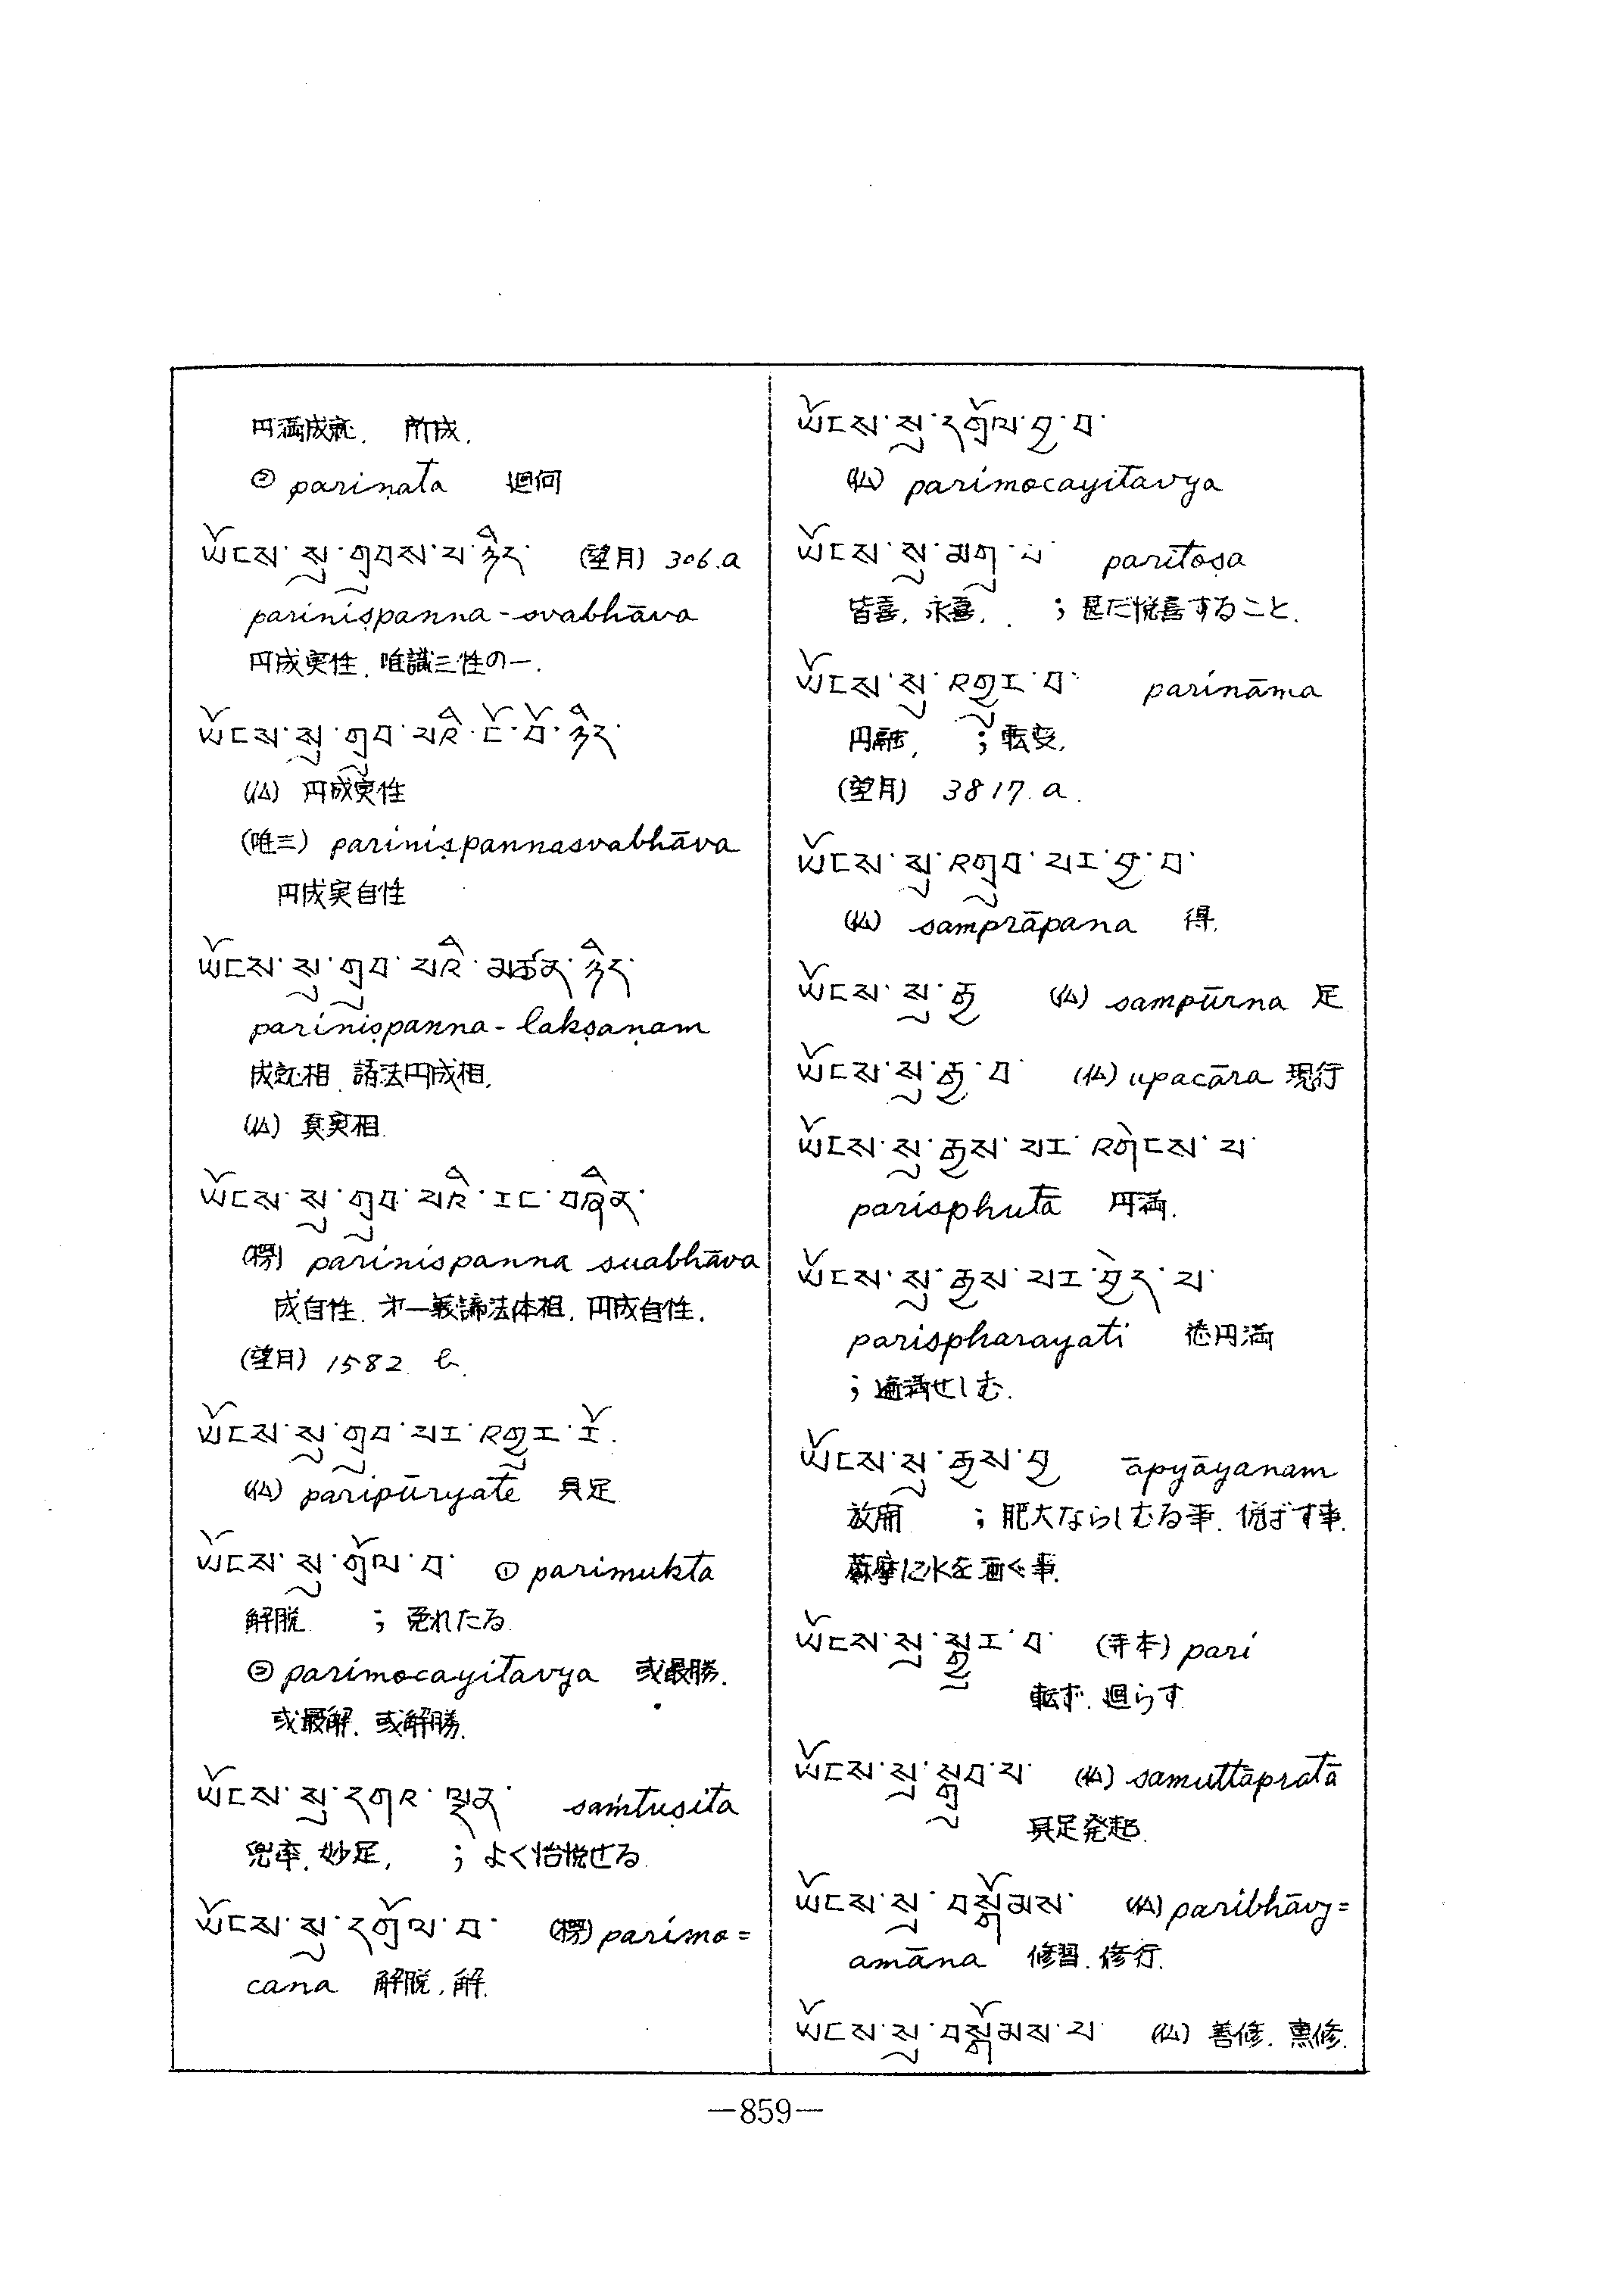 円満成就. 所成.
② pariṇata 廻向
ཡོངས་སུ་གྲུབས་པ་ཉིད་ (望月) 306.a
pariniṣpanna-svabhāva
円成実性. 唯識三性の一.
ཡོངས་སུ་གྲུབ་པའི་ངོ་བོ་ཉིད་
(仏) 円成実性
(唯三) pariniṣpannasvabhāva
円成実自性
ཡོངས་སུ་གྲུབ་པའི་མཚན་ཉིད་
pariniṣpanna-lakṣaṇam
成就相. 諸法円成相.
(仏) 真実相.
ཡོངས་སུ་གྲུབ་པའི་རང་བཞིན་
(楞) parinispanna suabhāva
成自性. 才一義諦法体相. 円成自性.
(望月) 1582. b.
ཡོངས་སུ་གྲུབ་པར་འགྱུར་རོ.
(仏) paripūryate 具足
ཡོངས་སུ་གྲོལ་བ་ ① parimukta
解脱 ; 免れたる
② parimocayitavya 或最勝.
或最解. 或解勝.
ཡོངས་སུ་དགའ་ལྡན་ saṁtuṣita
兜率. 妙足. ; よく怡悦せる
ཡོངས་སུ་དགྲོལ་བ་ (楞) parimo=
cana 解脱. 解.
ཡོངས་སུ་དགྲོལ་བྱ་བ་
(仏) parimocayitavya
ཡོངས་སུ་མགུ་བ་ paritoṣa
皆喜. 永喜. ; 甚だ悦喜すること.
ཡོངས་སུ་འགྱུར་བ་ parināma
円融. ; 転変.
(望月) 3817. a.
ཡོངས་སུ་འགྲུབ་པར་བྱ་བ་
(仏) samprāpana 得.
ཡོངས་སུ་རྒྱ (仏) sampūrna 足
ཡོངས་སུ་རྒྱུ་བ་ (仏) upacāra 現行
ཡོངས་སུ་རྒྱས་པར་འགེངས་པ་
parisphutā 円満.
ཡོངས་སུ་རྒྱས་པར་བྱེད་པ་
parispharayati 円満
; 遍満せしむ.
ཡོངས་སུ་རྒྱས་བྱ āpyāyanam
; 肥大ならしむる事. 悦ばす事.
蘇摩に水を画ぐ事.
ཡོངས་སུ་སྒྱུར་བ་ pari
転ず. 廻らす
ཡོངས་སུ་སྒྲུབ་པ་ (仏) samuttāpratā
具足発起.
ཡོངས་སུ་བསྒོམས་ (仏) paribhāvy=
amāna 修習. 修行.
ཡོངས་སུ་བསྒོམས་པ་ (仏) 善修. 熏修.
—859—